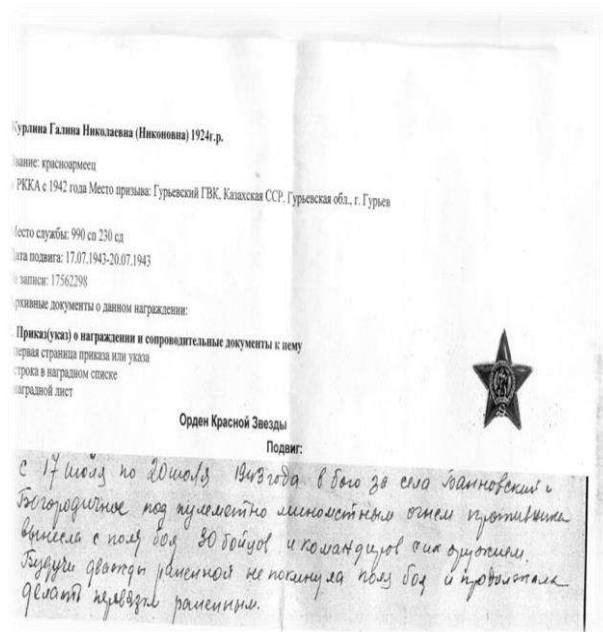 Курлина Галина Николаевна (Никоновна) 1924г.р.
звание: красноармеец
РККА с 1942 года Место призыва: Гурьевский ГВК, Казахская ССР, Гурьевская обл., г. Гурьев
Место службы: 990 сп 230 сд
Дата подвига: 17.07.1943-20.07.1943
записи: 17562298
Архивные документы о данном награждении:
Приказ(указ) о награждении и сопроводительные документы к нему
первая страница приказа или указа
строка в наградном списке
наградной лист
Орден Красной Звезды
Подвиг:
с 17 июля по 20 июля 1943 года в бою за села Банновский и
Богородичное под пулеметно минометным огнем противника
вынесла с поля боя 30 бойцов и командиров с их оружием.
Будучи дважды раненной не покинула поля боя и продолжала
делать перевязки раненным.